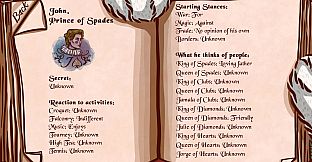 Back
John,
Prince of Spades
Secret:
Unknown
Reaction to activities:
Croquet: Unknown
Falconry: Indifferent
Music: Enjoys
Tourney: Unknown
High Tea: Unknown
Tennis: Unknown
Starting Stances:
War: For
Magic: Against
Trade: No opinion of his own
Borders: Unknown
What he thinks of people:
King of Spades: Loving father
Queen of Spades: Unknown
King of Clubs: Unknown
Queen of Clubs: Unknown
Jamala of Clubs: Unknown
King of Diamonds: Unknown
Queen of Diamonds: Friendly
Julie of Diamonds: Unknown
King of Hearts: Unknown
Queen of Hearts: Unknown
Jorge of Hearts: Unknown